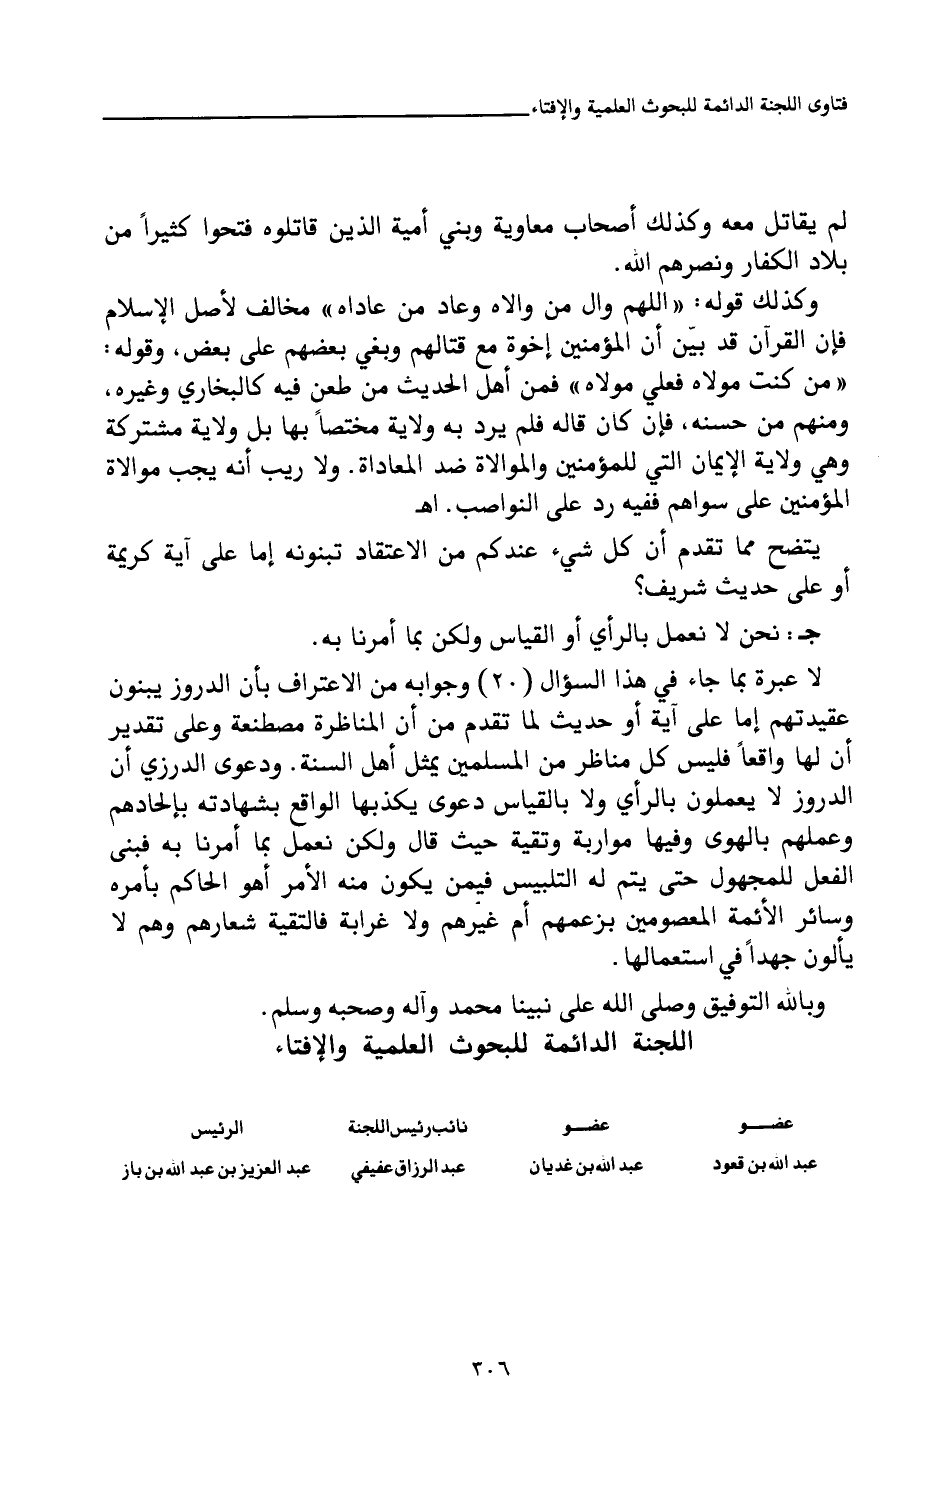 فتاوى اللجنة الدائمة للبحوث العلمية والإفتاء
لم يقاتل معه وكذلك أصحاب معاوية وبني أمية الذين قاتلوه فتحوا كثيراً من
بلاد الكفار ونصرهم الله.
وكذلك قوله: «اللهم وال من والاه وعاد من عاداه» مخالف لأصل الإسلام
فإن القرآن قد بيّن أن المؤمنين إخوة مع قتالهم وبغي بعضهم على بعض، وقوله:
«من كنت مولاه فعلي مولاه» فمن أهل الحديث من طعن فيه كالبخاري وغيره،
ومنهم من حسنه، فإن كان قاله فلم يرد به ولاية مختصاً بها بل ولاية مشتركة
وهي ولاية الإيمان التي للمؤمنين والموالاة ضد المعاداة. ولا ريب أنه يجب موالاة
المؤمنين على سواهم ففيه رد على النواصب. اهـ
يتضح مما تقدم أن كل شيء عندكم من الاعتقاد تبنونه إما على آية كريمة
أو على حديث شريف؟
جـ: نحن لا نعمل بالرأي أو القياس ولكن بما أمرنا به.
لا عبرة بما جاء في هذا السؤال (٢٠) وجوابه من الاعتراف بأن الدروز يبنون
عقيدتهم إما على آية أو حديث لما تقدم من أن المناظرة مصطنعة وعلى تقدير
أن لها واقعاً فليس كل مناظر من المسلمين يمثل أهل السنة. ودعوى الدرزي أن
الدروز لا يعملون بالرأي ولا بالقياس دعوى يكذبها الواقع بشهادته بإلحادهم
وعملهم بالهوى وفيها مواربة وتقية حيث قال ولكن نعمل بما أمرنا به فبنى
الفعل للمجهول حتى يتم له التلبيس فيمن يكون منه الأمر أهو الحاكم بأمره
وسائر الأئمة المعصومين بزعمهم أم غيرهم ولا غرابة فالتقية شعارهم وهم لا
يألون جهداً في استعمالها.
وبالله التوفيق وصلى الله على نبينا محمد وآله وصحبه وسلم.
اللجنة الدائمة للبحوث العلمية والإفتاء
عضـــو عضـــو نائب رئيس اللجنة الرئيس
عبد الله بن قعود عبد الله بن غديان عبد الرزاق عفيفي عبد العزيز بن عبد الله بن باز
٣٠٦